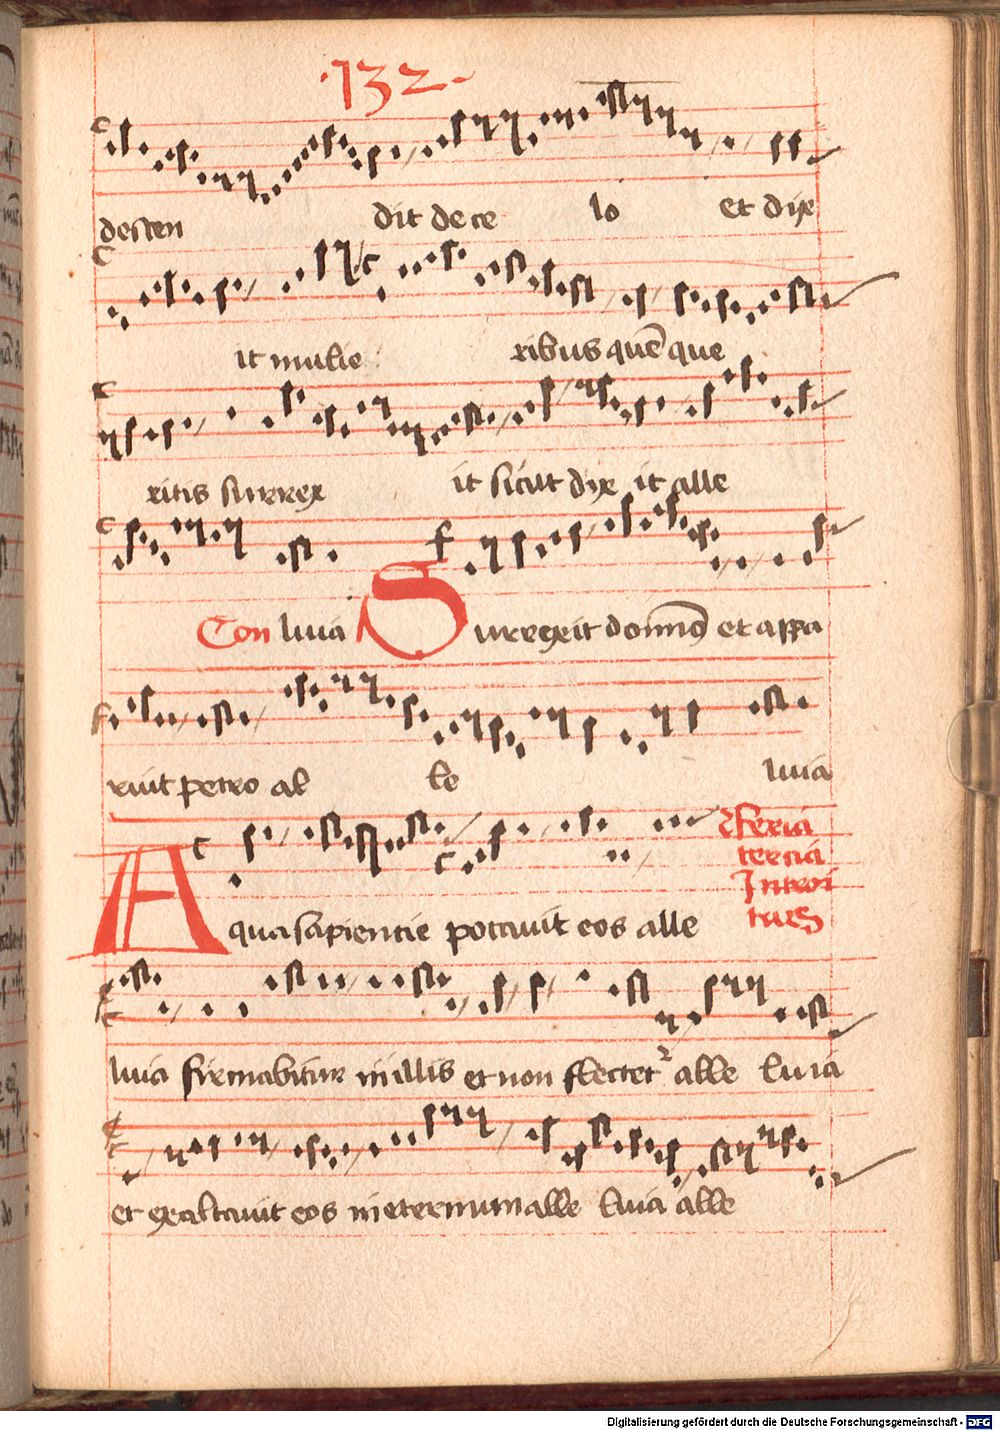 ·132·
descen dit de ce lo et dixe
it mulie ribus quē que
ritis surrex it sicut dix it alle
Con luia Surrexit domin9 et appa
ruit petro al le luia
Feria
tercia
Introi
tus
Aqua sapiencie potauit eos alle
luia firmabitur in illis et non flectet alle luia
et exaltauit eos in eternum alle luia alle
Digitalisierung gefördert durch die Deutsche Forschungsgemeinschaft - DFG